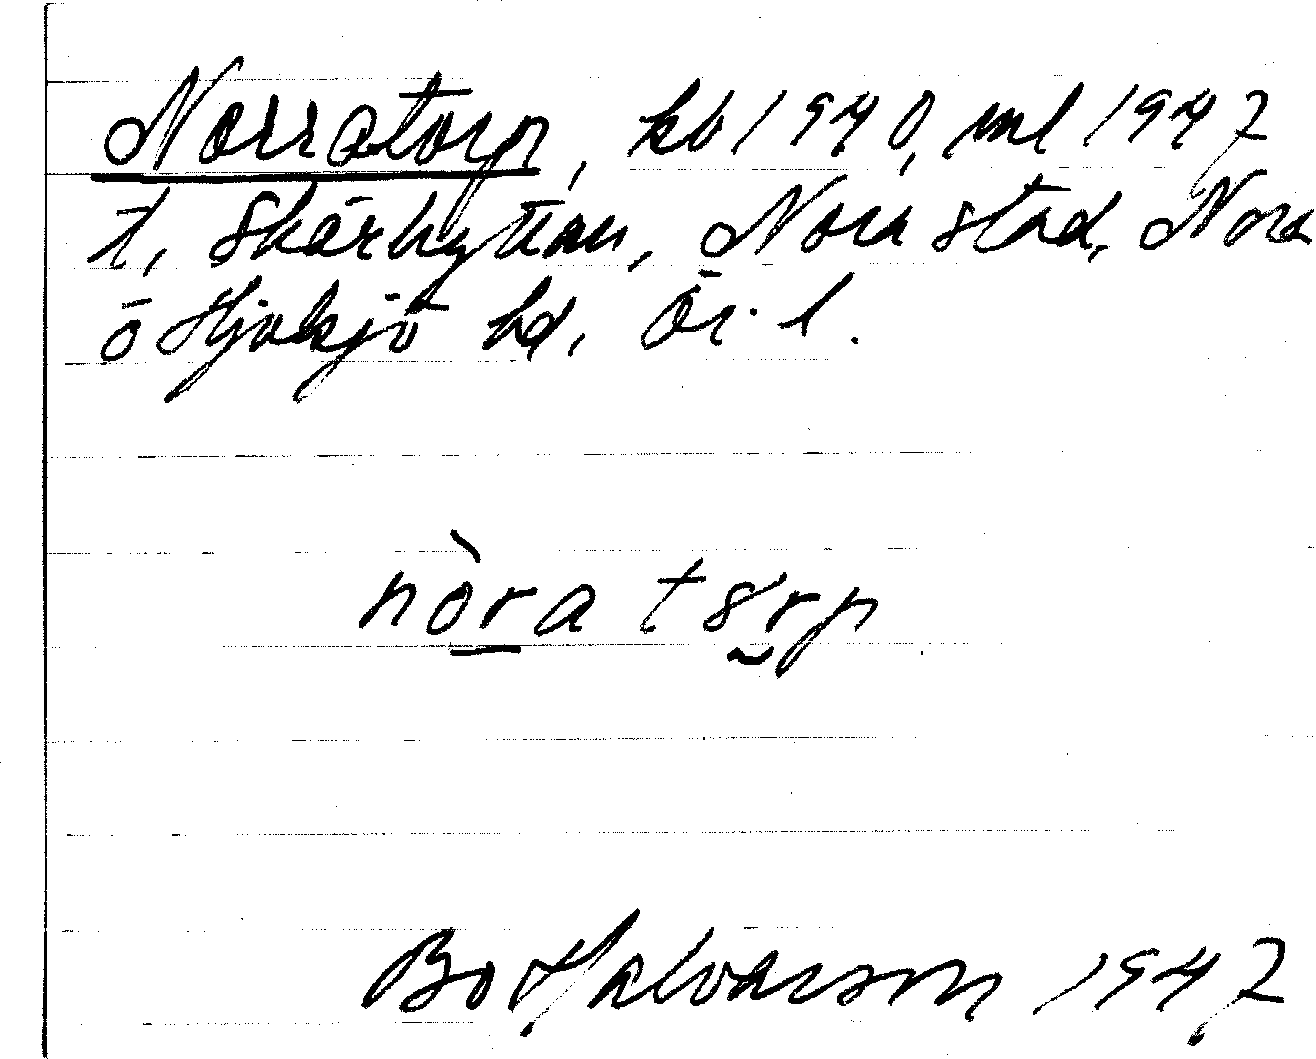 Norratorp, kb 1940, ml 1947
t, Skärhyttan, Nora stad, Nora
o Hjulsjö hd, Ör. l.
nòra tɷrp
Bo Halvarson 1947